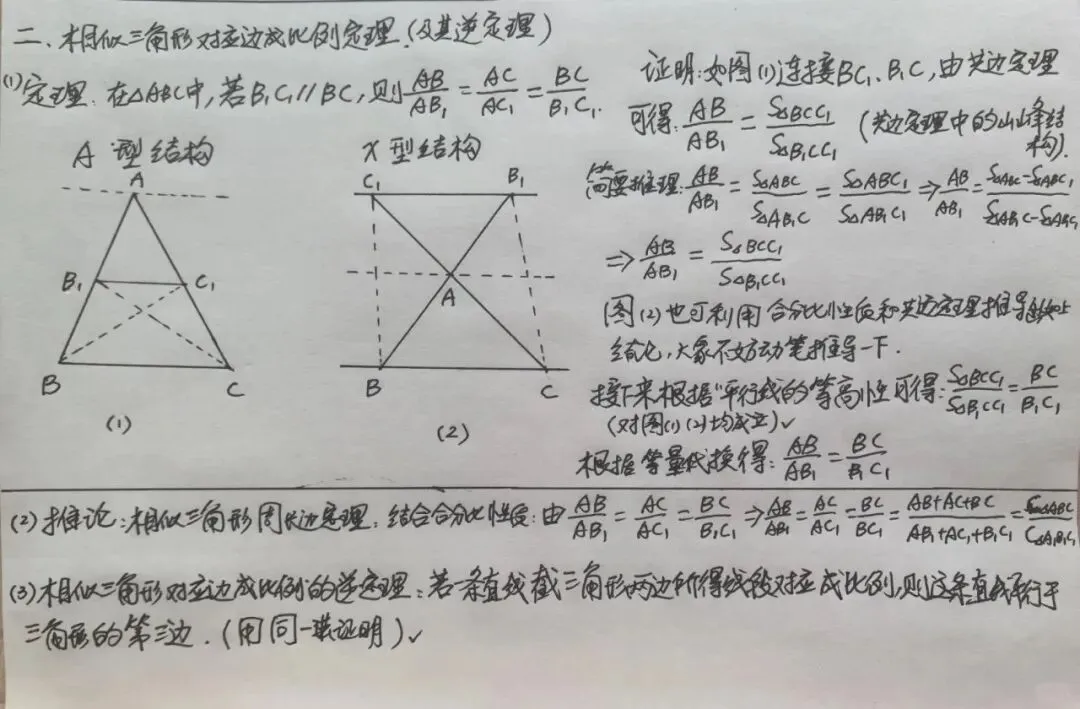 二、相似三角形对应边成比例定理.(及其逆定理)
(1)定理: 在△ABC中,若B₁C₁//BC,则AB/AB₁=AC/AC₁=BC/B₁C₁.
A 型结构
X 型结构
A
B₁
C₁
B
C
(1)
C₁
B₁
A
B
C
(2)
证明:如图(1)连接BC₁、B₁C,由共边定理
可得:AB/AB₁=S△BCC₁/S△B₁CC₁ (共边定理中的山峰结
构).
简要推理:AB/AB₁=S△ABC/S△AB₁C=S△ABC₁/S△AB₁C₁⇒AB/AB₁=S△ABC-S△ABC₁/S△AB₁C-S△AB₁C₁
⇒AB/AB₁=S△BCC₁/S△B₁CC₁
图(2)也可利用合分比性质和共边定理推导出如上
结论,大家不妨动笔推导一下.
接下来根据"平行线的"等高性可得:S△BCC₁/S△B₁CC₁=BC/B₁C₁
(对图(1)(2)均成立)✓
根据等量代换得:AB/AB₁=BC/B₁C₁
(2)推论:相似三角形周长边定理:结合合分比性质:由AB/AB₁=AC/AC₁=BC/B₁C₁⇒AB/AB₁=AC/AC₁=BC/BC₁=AB+AC+BC/AB₁+AC₁+B₁C₁=C△ABC/C△A₁B₁C₁
(3)相似三角形对应边成比例的逆定理:若一条直线截三角形两边所得线段对应成比例,则这条直线平行于
三角形的第三边.(用同一法证明)✓